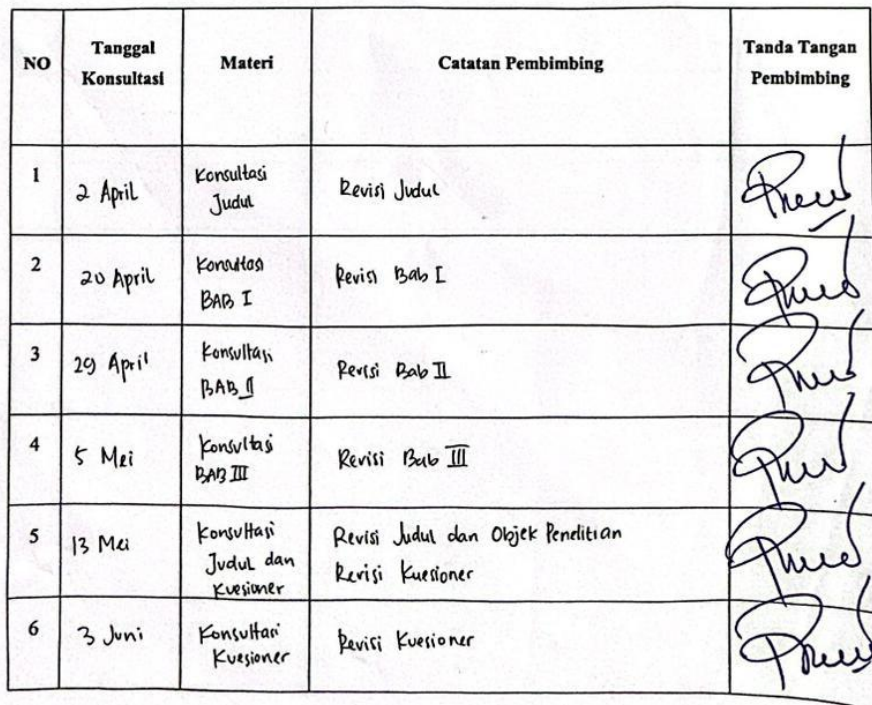 NO
Tanggal Konsultasi
Materi
Catatan Pembimbing
Tanda Tangan Pembimbing
1
2 April
Konsultasi
Judul
Revisi Judul
2
20 April
Konsultasi
BAB I
Revisi Bab I
3
29 April
Konsultasi
BAB II
Revisi Bab II
4
5 Mei
Konsultasi
BAB III
Revisi Bab III
5
13 Mei
Konsultasi
Judul dan
Kuesioner
Revisi Judul dan Objek Penelitian
Revisi Kuesioner
6
3 Juni
Konsultasi
Kuesioner
Revisi Kuesioner